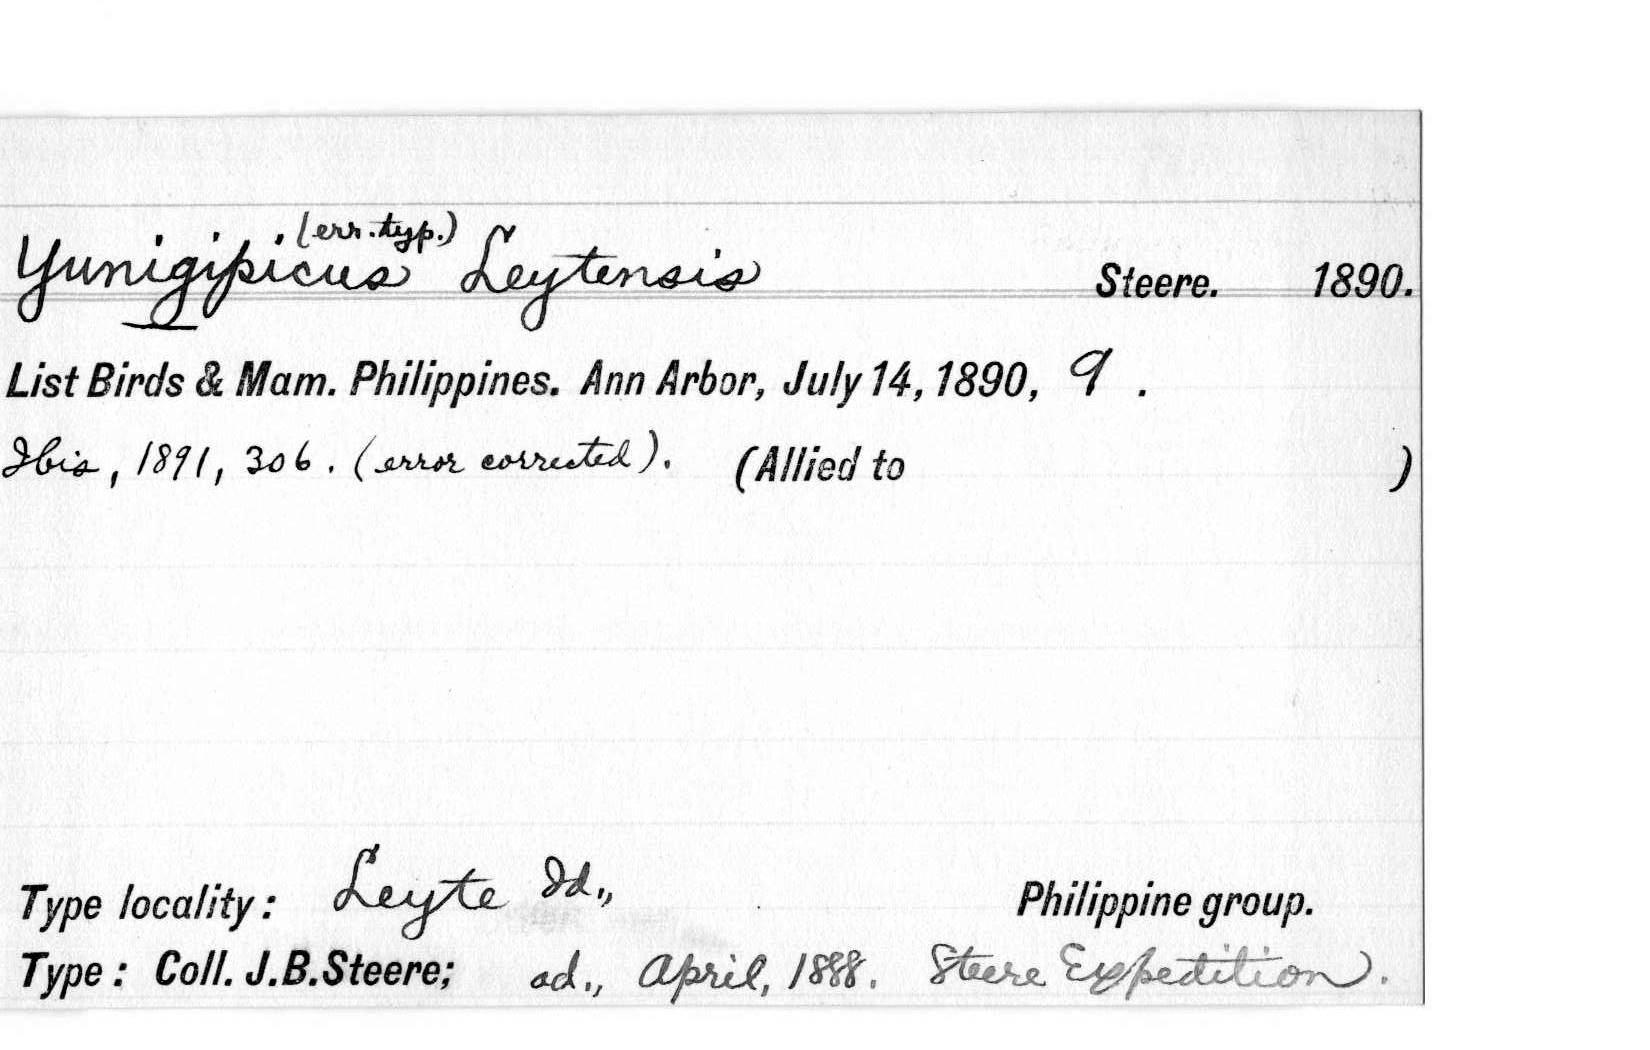 (err. typ.)
Yunigipicus Leytensis Steere. 1890.
List Birds & Mam. Philippines. Ann Arbor, July 14, 1890, 9 .
Ibis, 1891, 306. (error corrected). (Allied to )
Type locality: Leyte Id., Philippine group.
Type: Coll. J.B.Steere; ad., April, 1888. Steere Expedition.